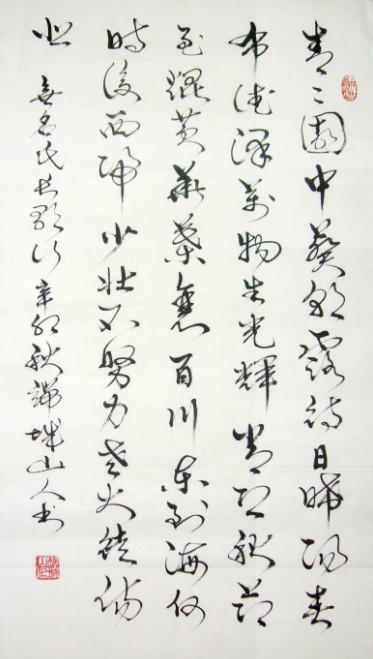 青々園中葵朝露待日晞陽春
布德澤萬物生光輝常恐秋節
至焜黃華葉衰百川東到海何
時復西歸少壯不努力老大徒傷
悲 無名氏長歌行 辛卯秋 城山人书